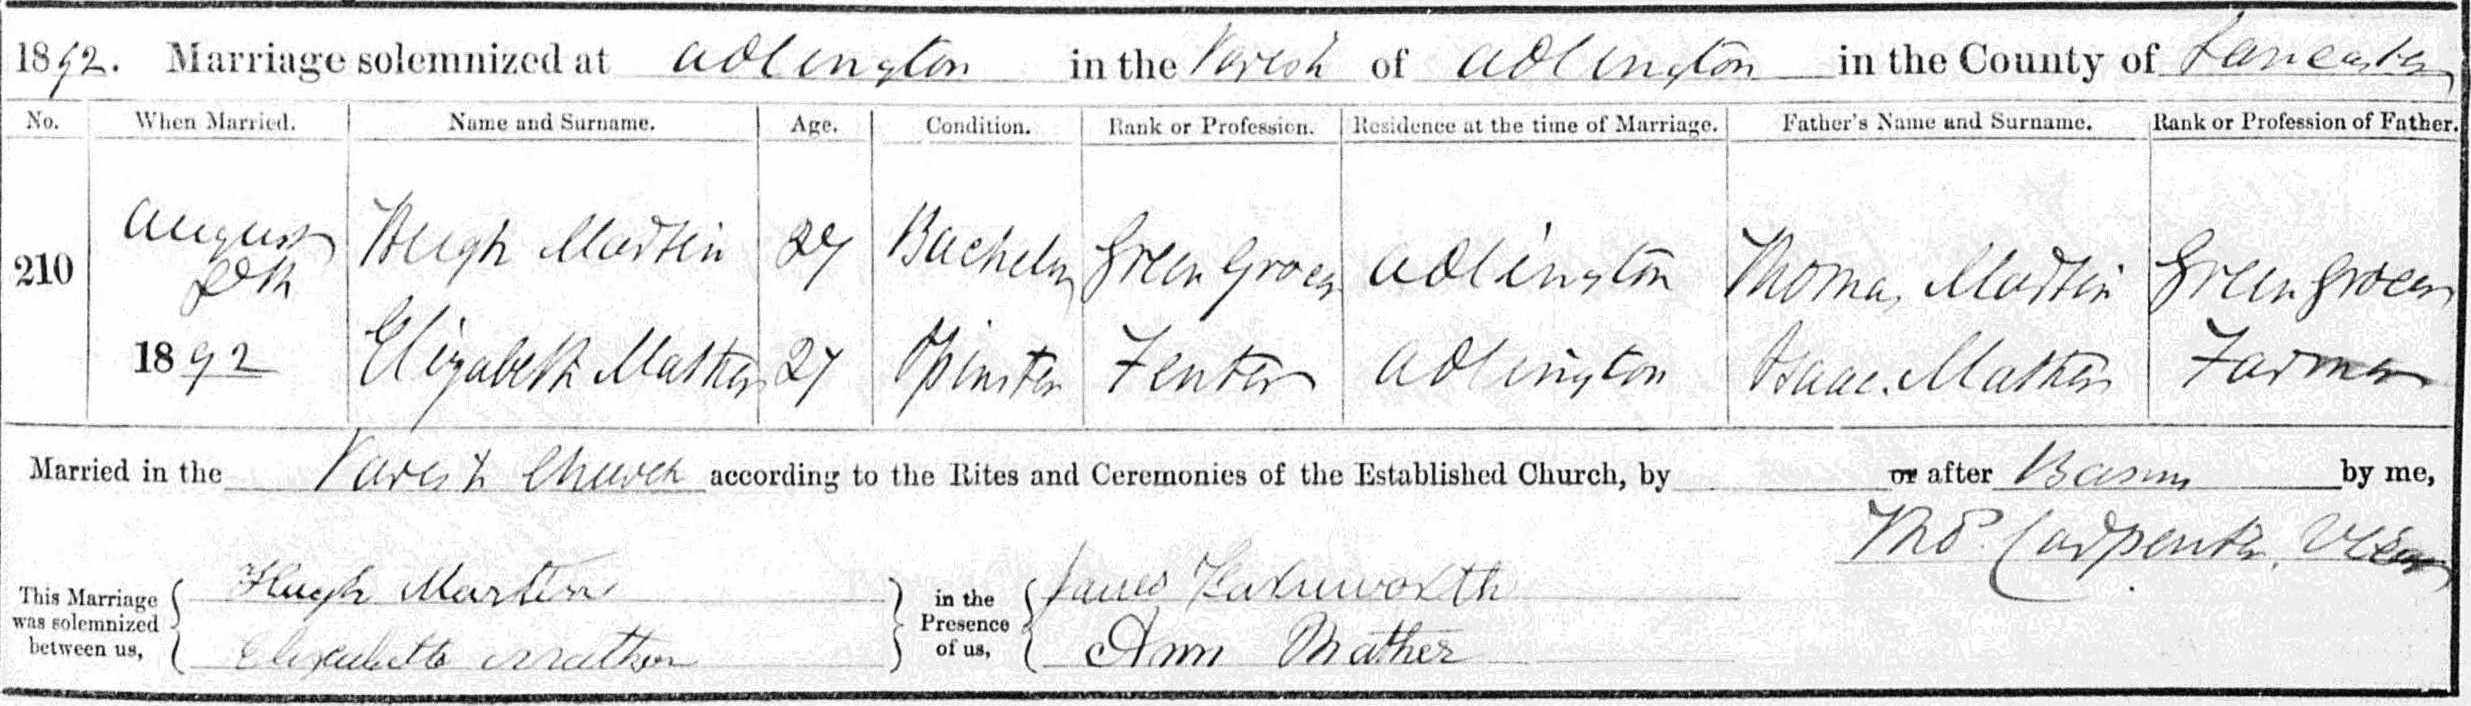 1892. Marriage solemnized at Adlington in the Parish of Adlington in the County of Lancaster
No. When Married. Name and Surname. Age. Condition. Rank or Profession. Residence at the time of Marriage. Father's Name and Surname. Rank or Profession of Father.
210 August Hugh Martin 27 Bachelor Green Grocer Adlington Thomas Martin Greengrocer
1892 Elizabeth Mather 27 Spinster Tenter Adlington Isaac Mather Farmer
Married in the Parish Church according to the Rites and Ceremonies of the Established Church, by or after Banns by me,
Thos. Carpenter, Vicar
This Marriage was solemnized between us, Hugh Martin in the Presence of us, James
Elizabeth Mather Ann Mather